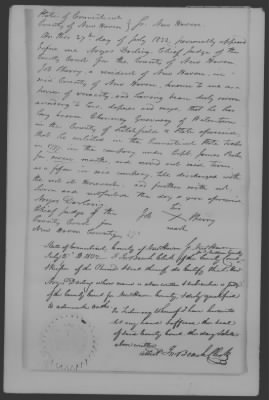 State of Connecticut
County of New Haven } ss. New Haven.
On this 27th day of July 1832, personally appeared
before me Noyes Darling, Chief Judge of the
County Court for the County of New Haven
Job Perry a resident of New Haven, in
said County of New Haven, known to me as a
person of veracity, and having been duly sworn
according to law, deposes and says, that he has
long known Chauncey Guernsey of Watertown
in the County of Litchfield & State aforesaid,
that he enlisted in the Connecticut State Troops
in 1777, in the company under Capt. James
for months, and served out said term
as a fifer in said company, till discharged with
the rest at Horseneck, and further saith not
Sworn and subscribed the day & year aforesaid
Noyes Darling his
Chief Judge of the Job X Perry
County Court for mark
New Haven County
State of Connecticut, County of New Haven ss. New Haven
July 1832. I Clerk of the County Court
Keeper of the thereof do certify that
Noyes Darling whose name is above written & subscribed is judge
of the County Court for New Haven County, & duly qualified
to administer oaths
In testimony whereof I have hereunto
set my hand & affixed the seal
of said County Court the day & date
above written
Clerk